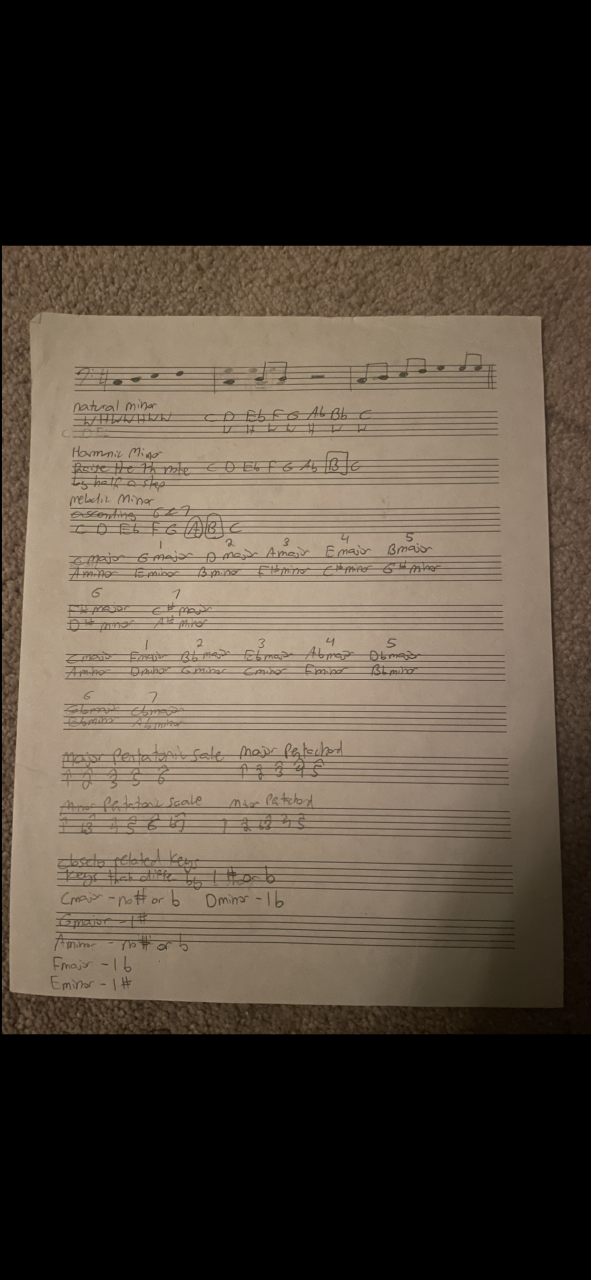 natural minor
W H W W H W W C D Eb F G Ab Bb C
W H W W H W W
C D E
Harmonic Minor
Raise the 7th note C D Eb F G Ab B C
by half a step
Melodic Minor
ascending 6 & 7
C D Eb F G A B C
1 2 3 4 5
C major G major D major A major E major B major
A minor E minor B minor F# minor C# minor G# minor
6 7
F# major C# major
D# minor A# minor
1 2 3 4 5
C major F major Bb major Eb major Ab major Db major
A minor D minor G minor C minor F minor Bb minor
6 7
Gb major Cb major
Eb minor Ab minor
Major Pentatonic scale Major Pentachord
1 2 3 5 6 1 2 3 4 5
Minor Pentatonic scale
1 2 b3 4 5
closely related keys
keys that differ by 1 # or b
C major - no # or b D minor - 1 b
G major - 1 #
A minor - no # or b
F major - 1 b
E minor - 1 #